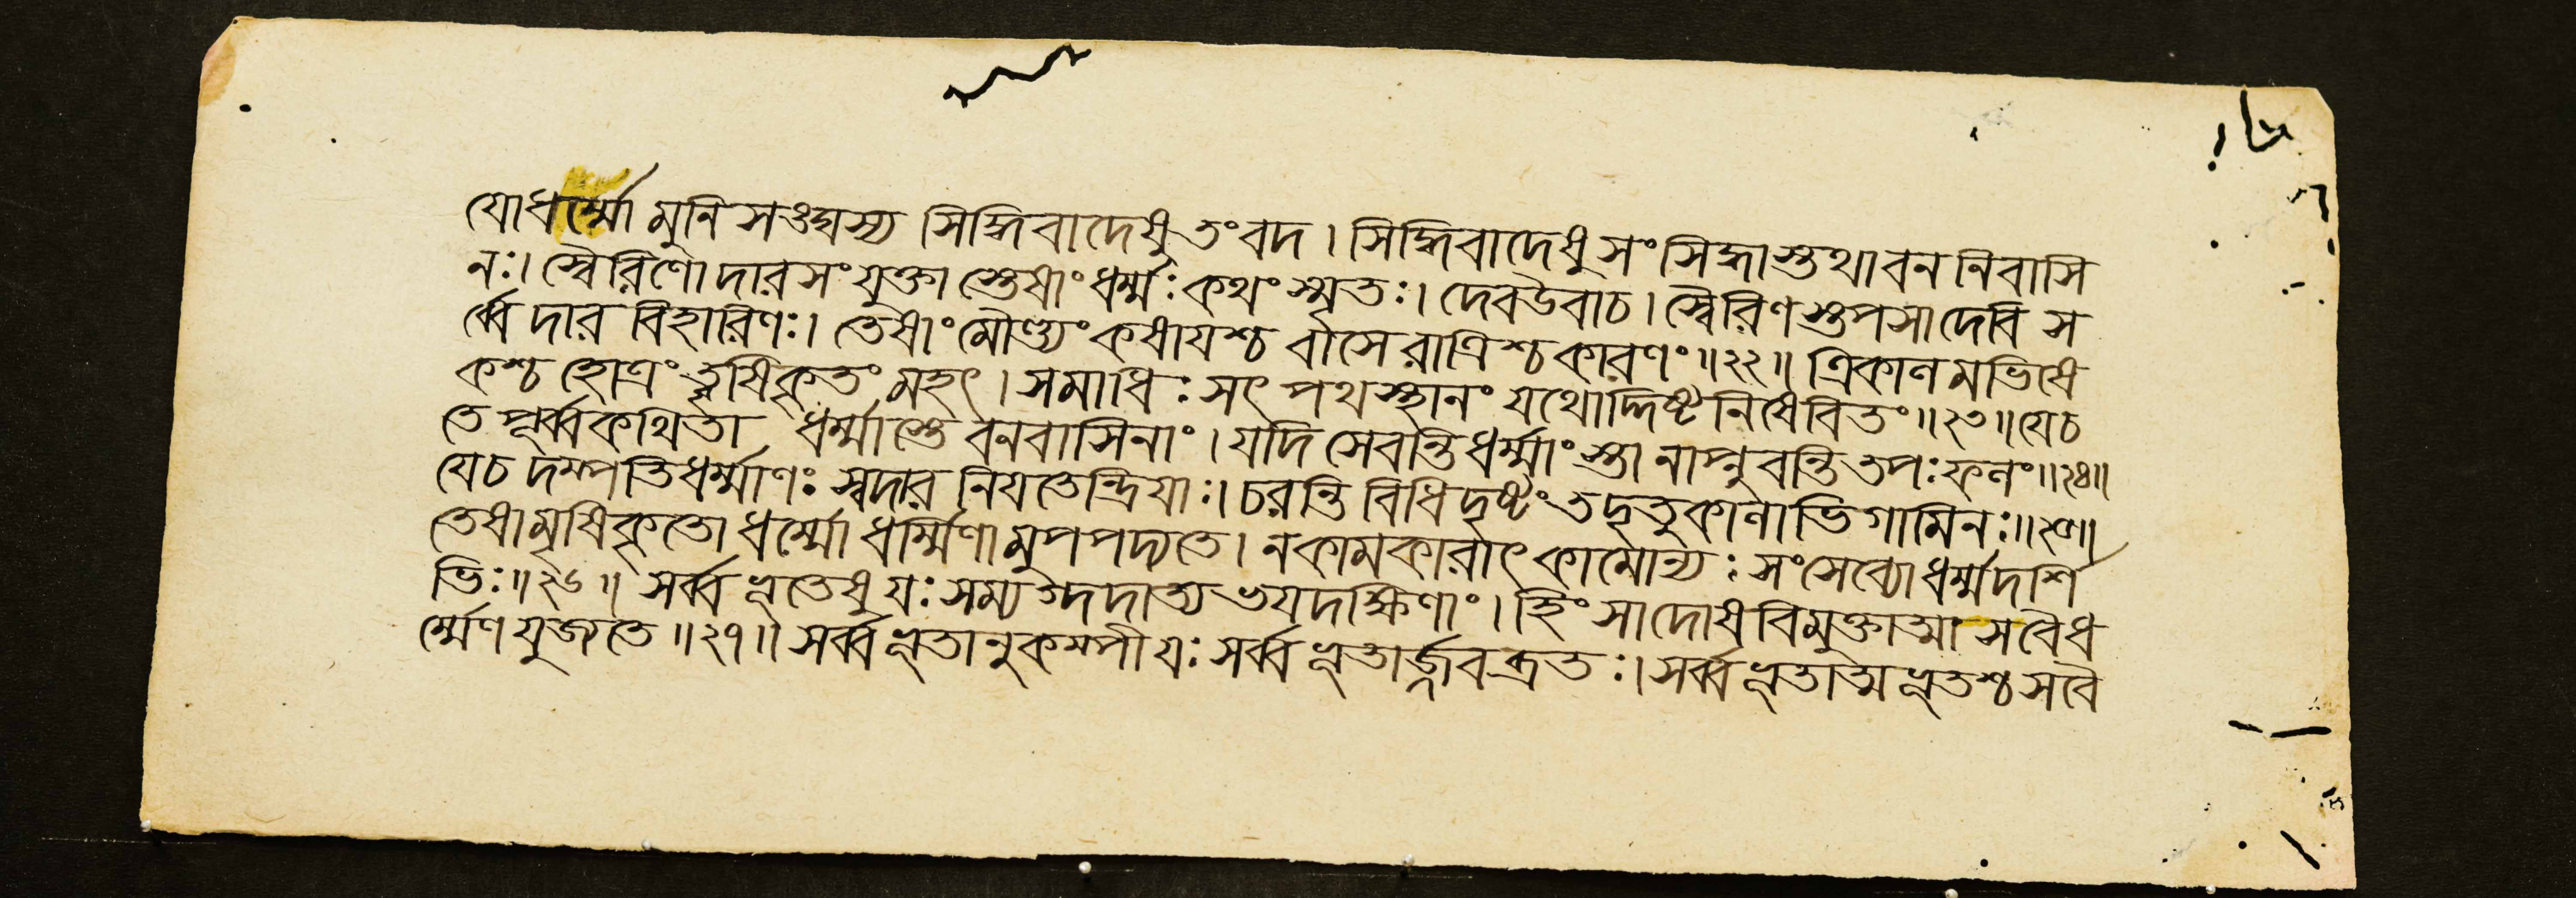 যোধর্ম্মো মুনি সঙঘস্য সিদ্ধিবাদেষু তংবদ । সিদ্ধিবাদেষু সংসিদ্ধাস্তথাবননিবাসি
নঃ। স্বৈরিণো দারসংযুক্তাস্তেষাংধর্ম্মঃ কথংস্মৃতঃ। দেবউবাচ। স্বৈরিণস্তপসাদেবি স
র্ব্বে দার বিহারিণঃ। তেষাংমৌণ্ড্যংকষাযশ্চ বাসেরাত্রিশ্চকারণং॥২২॥ ত্রিকালমভিষে
কশ্চহোত্রংত্বৃষিকৃতংমহৎ । সমাধিঃ সৎপথস্থানং যথোদ্দিষ্টনিষেবিতং॥২৩॥যেচ
তে পূর্ব্বকথিতা ধর্ম্মাস্তে বনবাসিনাং। যদি সেবন্তিধর্ম্মাংস্তানাপ্নুবন্তিতপঃফলং॥২৪॥
যেচ দম্পতিধর্ম্মাণঃ স্বদার নিযতেন্দ্রিযাঃ। চরন্তি বিধিদৃষ্টংতদৃতুকালাভিগামিনঃ॥২৫॥
তেষামৃষিকৃতো ধর্ম্মো ধর্ম্মিণামুপপদ্যতে। নকামকারাৎকামোন্যঃ সংসেব্যোধর্ম্মদর্শি
ভিঃ॥২৬॥ সর্ব্বভূতেষু যঃ সম্যগ্দদাত্যভযদক্ষিণাং। হিংসাদোষবিমুক্তাত্মা সবৈধ
র্ম্মেণযুজ্যতে॥২৭॥ সর্ব্বভূতানুকম্পীযঃ সর্ব্বভূতার্জ্জবব্রতঃ। সর্ব্বভূতাত্মভূতশ্চ সবৈ